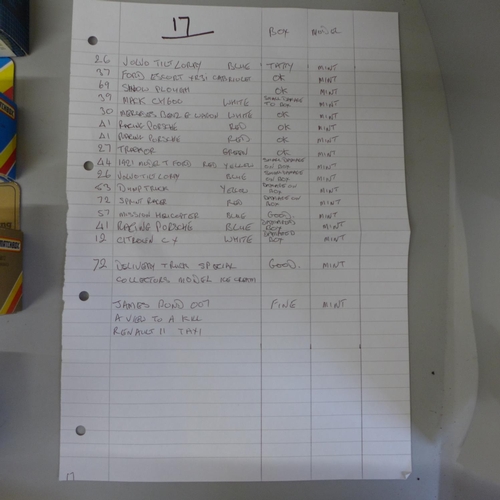 17 BOX MODEL
26 VOLVO TILT LORRY BLUE TATTY MINT
37 FORD ESCORT XR3I CABRIOLET OK MINT
69 SNOW PLOUGH OK MINT
39 MACK CH600 WHITE SMALL DAMAGE TO BOX MINT
30 MERCEDES BENZ G WAGON WHITE OK MINT
41 RACING PORSCHE RED OK MINT
41 RACING PORSCHE RED OK MINT
27 TRACTOR GREEN OK MINT
44 1921 MODEL T FORD RED YELLOW SMALL DAMAGE ON BOX MINT
26 VOLVO TILT LORRY BLUE SMALL DAMAGE ON BOX MINT
53 DUMP TRUCK YELLOW DAMAGE ON BOX MINT
72 SPRINT RACER RED DAMAGE ON BOX MINT
57 MISSION HELICOPTER BLUE GOOD MINT
41 RACING PORSCHE BLUE DAMAGED BOX MINT
12 CITROEN CX WHITE DAMAGED BOX MINT
72 DELIVERY TRUCK SPECIAL GOOD. MINT
COLLECTORS MODEL ICE CREAM
JAMES BOND 007 FINE MINT
A VIEW TO A KILL
RENAULT 11 TAXI